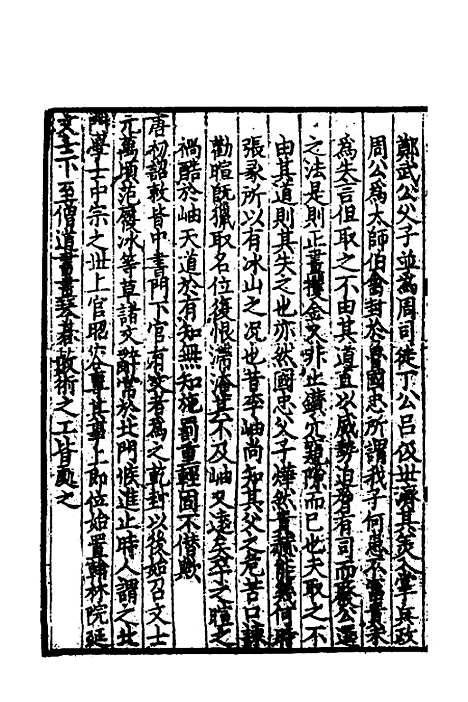 鄭武公父子並為周司徒丁公呂伋世濟其美入掌兵政
周公為太師伯禽封於魯國忠所謂我子何患不富貴未
為失言但取之不由其道直以威勢迫脅有司而蔑公選
之法是則正晝攫金又非止鑽穴窺隙而已也夫取之不
由其道則其失之也亦然國忠父子燁然貴赫能幾何時
張彖所以有冰山之况也昔李岫尚知其父之危苦口諫
勸暄既獵取名位復恨滯淹其不及岫又遠矣卒之暄之
禍酷於岫天道於有知無知施罰重輕固不僭歟
唐初詔敕皆中書門下官有文者為之乾封以後始召文士
元萬頃范履冰等草諸文辭常於北門候進止時人謂之北
門學士中宗之世上官昭容專其事上即位始置翰林院延
文士下至僧道書畫琴碁敞術之工皆處之